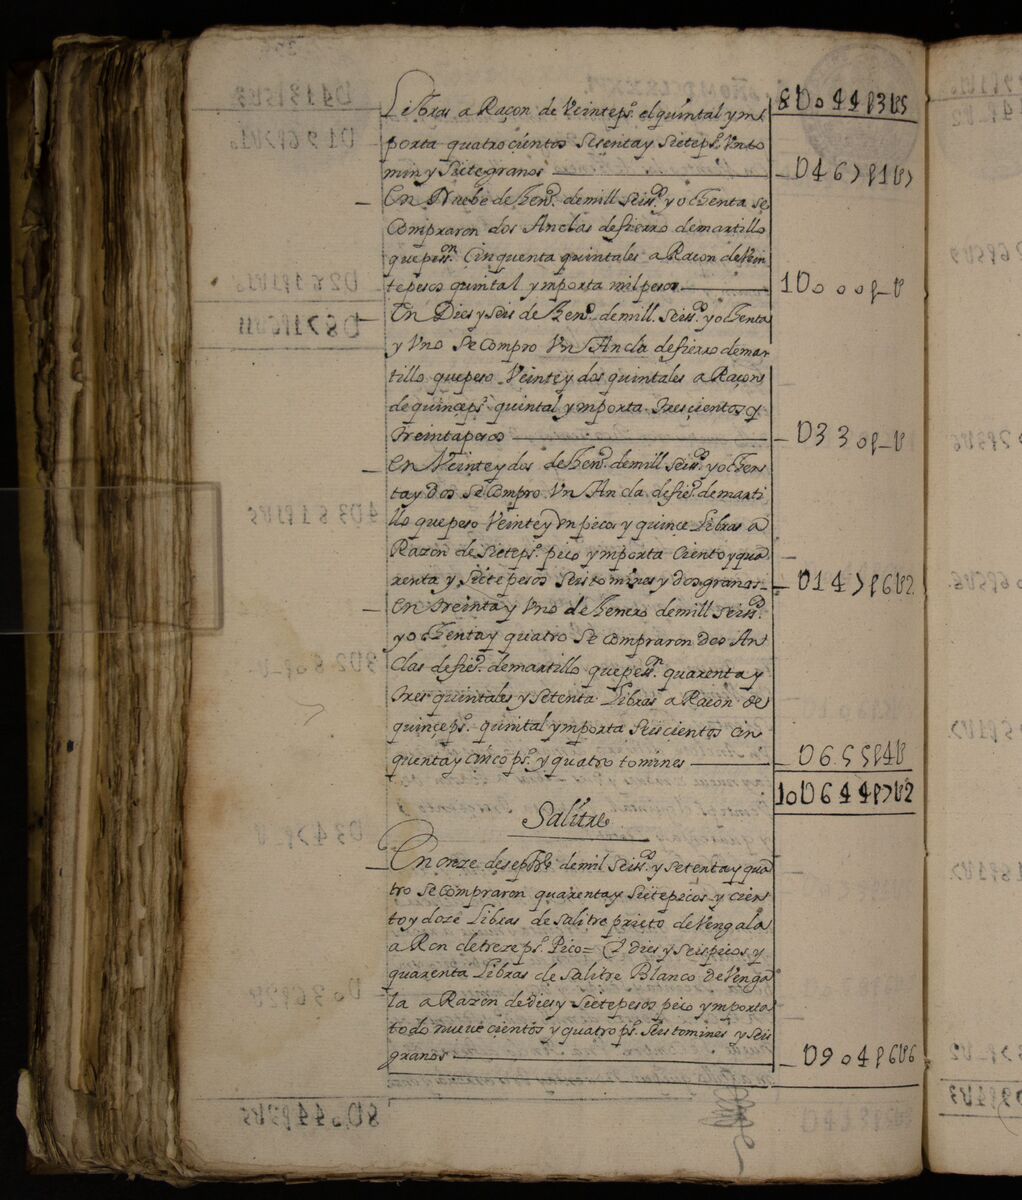 8U044p3U5
Libras a Raçon de Veinteps. el quintal ymx
porta quatrocientos Sesentay Sieteps. Unto
min y Sietegranos — U467p1U7
En Nuebe de hen.º demill Seiss.º y ochenta se
Compraron dos Anclas defierro demartillo
quepess.on Cinquenta quintales a Raçon deVein
tepesos quintal ymporta milpesos — 1U000p_U
En Diesyseis de hen.º demill. Seiss.º yochenta
y Uno Secompro Un Ancla defierro demar
tillo quepeso Veinteydos quintales a Raçons
dequinceps. quintal ymporta. trescientos y
treintapesos — U330p_U
En Veinteydos de hen.º demill Seiss.º yochen
taydos Secompro Un Ancla defie.º demarti
llo quepeso Veintey Un picos y quince Libras a
Razon de Sieteps. pico ymporta Ciento yqua
renta y Siete pesos Seis tomines y dosgranos_ U147p6U2
En treinta y Uno de henero demill Seiss.º
yochentay quatro Se compraron dos An
clas defie.º demartillo quepess.n quarenta y
tres quintales y Setenta Libras a Racon de
quinceps. quintal ymporta Seiscientos cin
quentay cinco ps. y quatro tomines — U655p4U
10U644p7U2
Salitre
En onze deseptre. demil Seiss.º y setentay qua
tro Se compraron quarentay Sietepicos y cien
toy doze Libras de Salitre prieto de Vengala
a Ron detreze ps. Pico= Y dies y Seispicos y
quarenta Libras de Salitre Blanco de Venga
la a Razon de dies y Sietepesos pico ymporta
todo nuevecientos y quatro ps. Seistomines y Seis
granos — U904p6U6